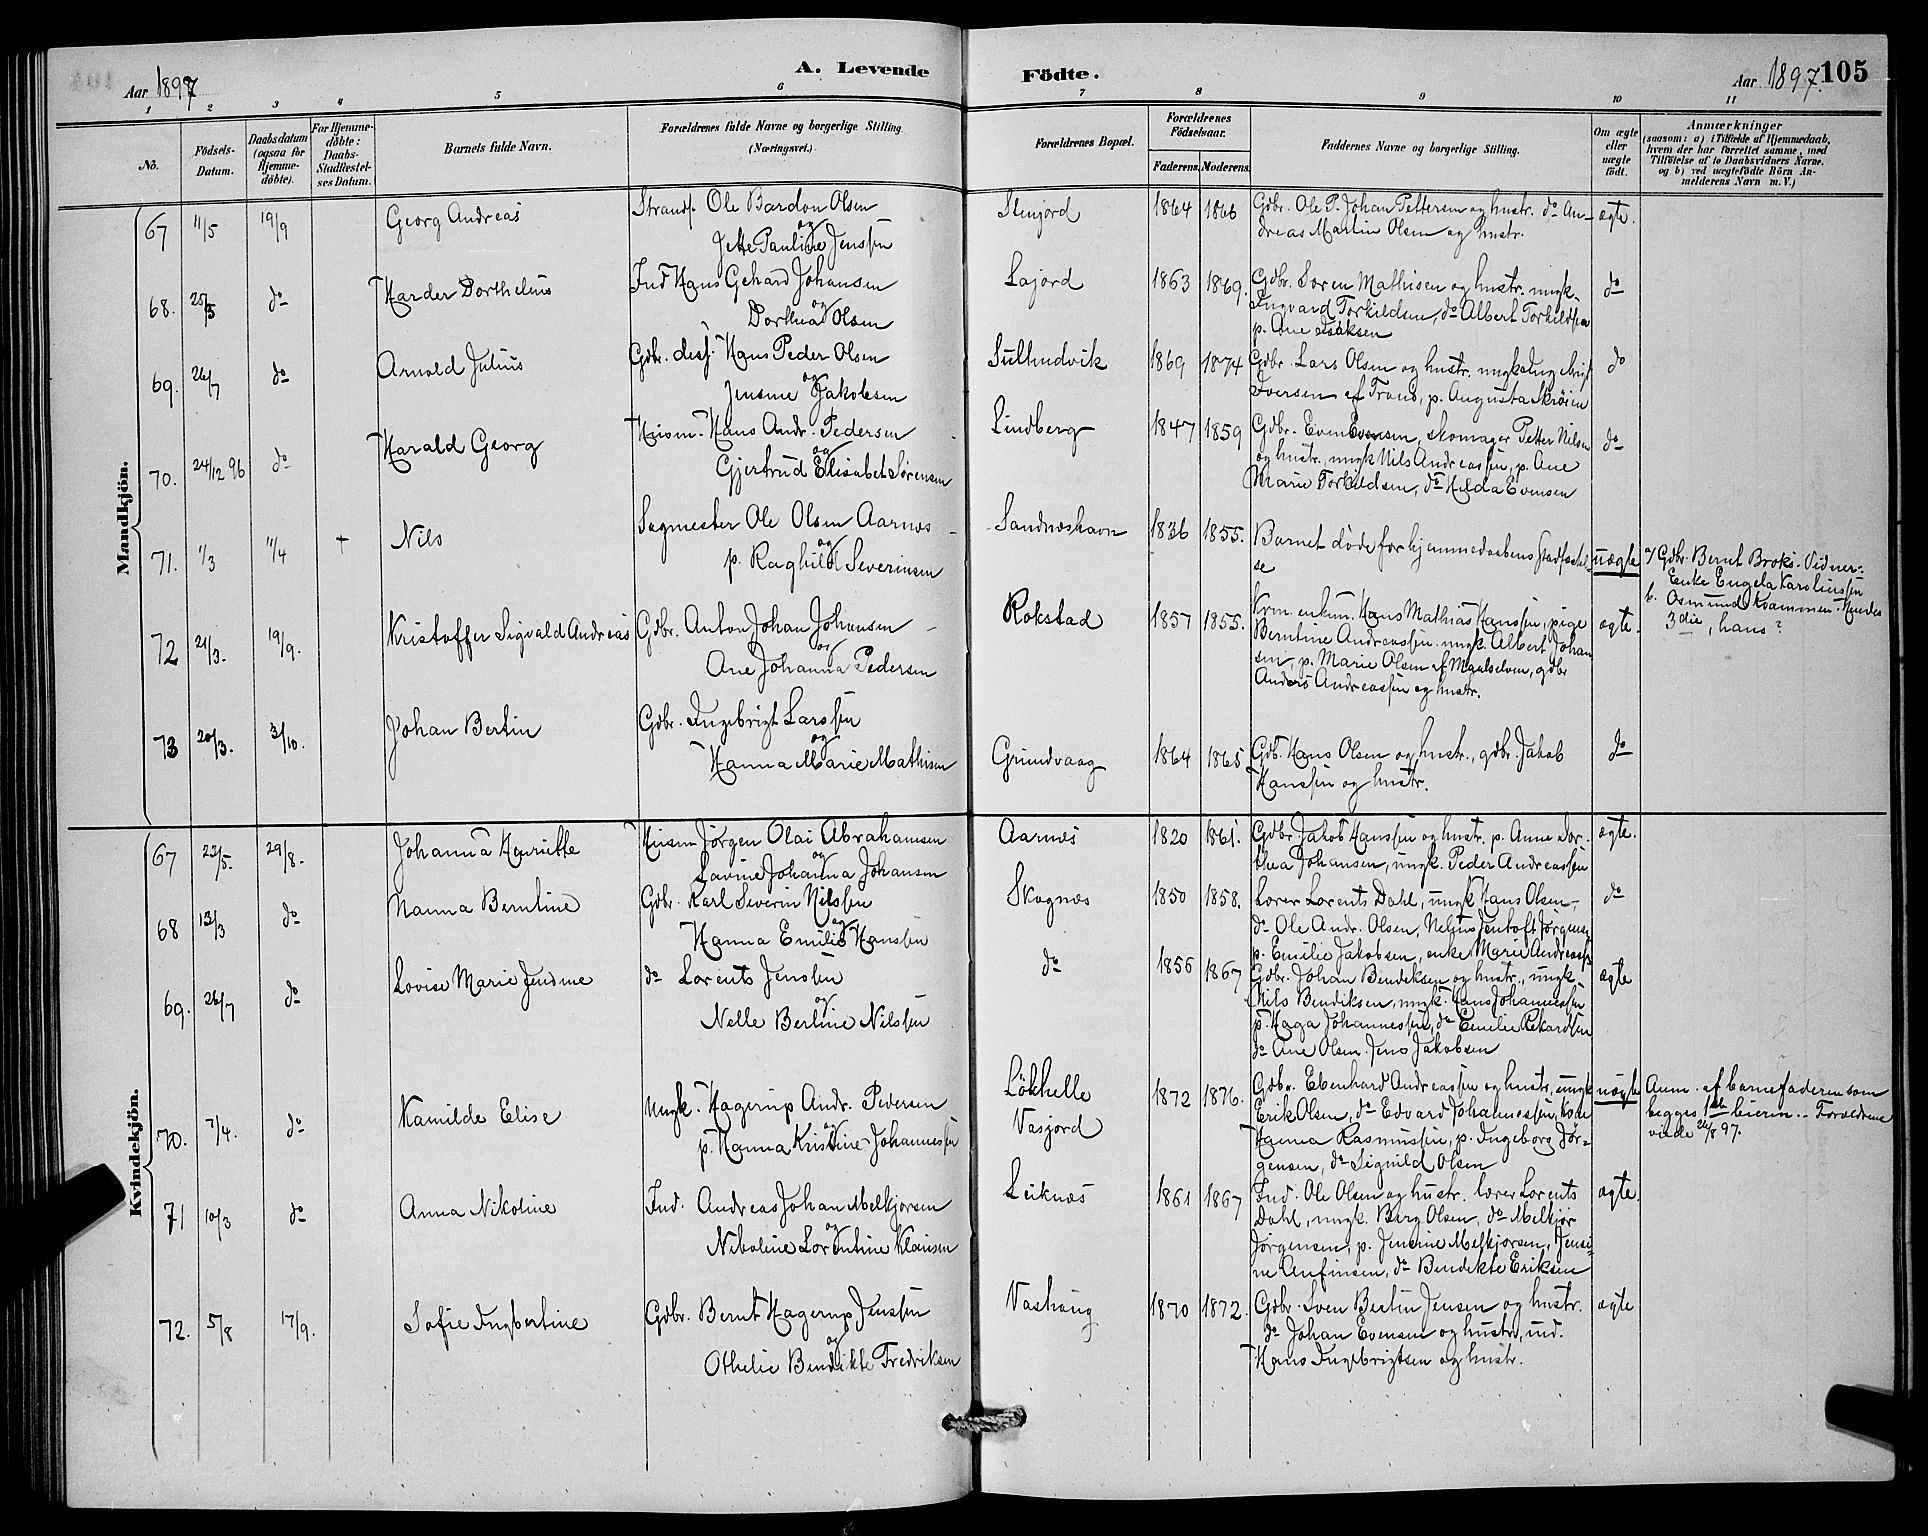 Aar 1897
A. Levende
Födte.
Aar 1897. 105
1 2 3 4 5 6 7 8 9 10 11
No.
Födsels-
Datum.
Daabsdatum
(ogsaa for
Hjemme-
döbte).
For Hjemme-
döbte:
Daabs-
Stadfæstel-
ses Datum.
Barnets fulde Navn.
Forældrenes fulde Navne og borgerlige Stilling.
(Næringsvei.)
Forældrenes Bopæl.
Forældrenes
Födselsaar.
Faderens. Moderens.
Faddernes Navne og borgerlige Stilling.
Om ægte
eller
uægte
födt.
Anmærkninger
(saasom: a) i Tilfælde af Hjemmedaab,
hvem der har forrettet samme, med
Tilföielse af to Daabsvidners Navne,
og b) ved uægtefödte Börn An-
melderens Navn m. V.)
Mandkjön.
67 11/5 19/9 Georg Andreas
Strands. Ole Bardon Olsen
og
Jette Pauline Jenssen
Stenjord 1864 1866
Gdbr. Ole P. Johan Pettersen og hustr. do An-
dreas Martin Olsen og hustr.
ægte.
68. 25/5 do Harder Dorthelius
Ind Hans Gehard Johansen
og
Dorthea Olsen
Lajord 1863 1869.
Gdbr. Soren Mathisen og hustr. ungk.
Ingvard Torkildsen, do Albert Torkildsen
p. Ane Isaksen
do
69. 26/7 do Arnold Julius
Gdbr. des. Hans Peder Olsen
og
Jensine Jakobsen
1869 1874
Gdbr. Lars Olsen og hustr.
Iversen af Tranö, p. Augusta
do
70. 24/12 96 do Harald Georg
Husm. Hans Andr. Pedersen
og
Gjertrud Elisabet Sörensen
Lindberg 1847 1859
Gdbr. Even Evensen, skomager Petter Nilsen
og hustr., ungk Nils Andreassen, p. Ane
Marie Torkildsen, do Hilda Evensen
do
71. 1/3 11/4 + Nils
Sagmester Ole Olsen Aarnæs
og
p. Raghild Severinsen
Sandnæshavn 1836 1855.
Barnet döde for hjemmedaabens Stadfæstel-
se
uægte
a/ Gdbr. Bernt Broks. Vidner:
Enke Engela Karoliussen
b. Osmund Kvammen. Hendes
3die, hans?
72 21/3. 19/9. Kristoffer Sigvald Andreas
Gdbr. Anton Johan Johansen
og
Ane Johanna Pedersen
Rokstad 1857 1855.
Krm. enkm. Hans Mathias Hanssen, pige
Berntine Andreassen. ungk. Albert Johan-
sen, p. Marie Olsen af Maalselven, gdbr
Anders Andreassen og hustr.
ægte.
73 20/3. 3/10. Johan Bertin
Gdbr. Ingebrigt Larssen
og
Hanna Marie Mathisen
Grundvaag 1864 1865
Gdb. Hans Olsen og hustr., gdbr. Jakob
Hanssen og hustr.
do
Kvindekjön.
67 22/5. 29/8. Johanna Henriette
Husm Jörgen Olai Abrahamsen
og
Lavine Johanna Johansen
Aarnes 1820 1861.
Gdbr. Jakob Hanssen og hustr, p. Anne Dor-
thea Johansen, ungk. Peder Andreassen
ægte.
68 13/3 do Nanna Berntine
Gdbr. Karl Severin Nilssen
og
Hanna Emilie Hanssen
Skognæs 1850 1858.
Lærer Lorents Dahl, ungk Hans Olsen,
do Ole Andr. Olsen, Nelius Jentoft Jörgensen
p. Emilie Jakobsen, enke Marie Andreassen
do
69. 26/7 do Lovise Marie Jensine
do Lorents Jenssen
og
Nelle Berline Nilssen
do 1856 1867
Gdbr. Johan Bendiksen og hustr., ungk
Nils Bendiksen, ungk. Hans Johannessen
p. Haga Johannessen, do Emilie Rikardsen
do Ane Olsen. Jens Jakobsen
ægte
70. 7/4. do Kamilde Elise
Ungk. Hagerup Andr. Pedersen
og
p. Hanna Kristine Johannessen
Lökhelle
Vasjord
1872 1876.
Gdbr. Ebenhard Andreassen og hustr, ungk
Erik Olsen, do Edvard Johannessen, Kone
Hanna Rasmussen, p. Ingeborg Jör-
gensen, do Signild Olsen
uægte
Anm. af barnefaderen som
begges 1ste leierm. Forældrene
viede 26/8 97.
71 10/3 do Anna Nikoline
Ind. Andreas Johan Melkjorsen
og
Nikoline Lorentine Klausen
Leiknæs 1861 1867
Ind. Ole Olsen og hustr. lærer Lorents
Dahl, ungk. Berg Olsen, do Melkjör
Jörgensen, p. Jensine Melkjorsen, Jensi-
ne Anfinsen, do Bendikte Eriksen
ægte.
72. 5/8 17/9. Sofie Ingbertine
Gdbr. Bernt Hagerup Jenssen
og
Othelie Bendikte Fredriksen
Vashaug 1870 1872.
Gdbr. Sven Bertin Jensen og hustr.
do Johan Evensen og hustr, ind.
Hans Ingebrigtsen og hustr.
ægte